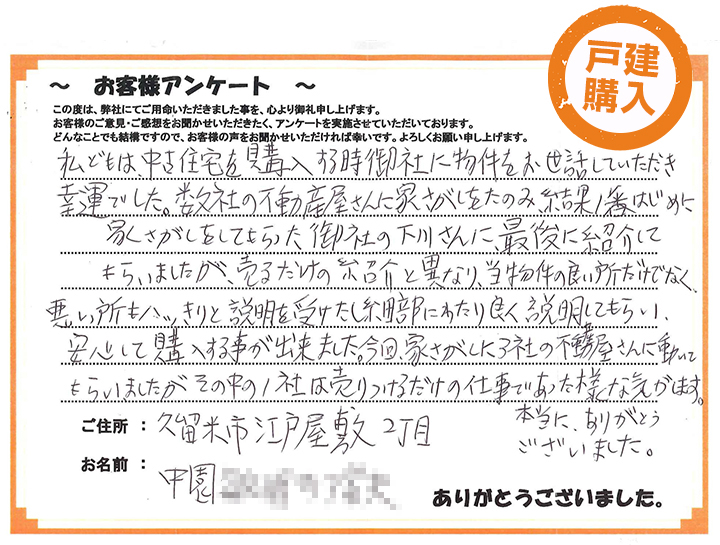 戸建
購入
～ お客様アンケート ～
この度は、弊社にてご用命いただきました事を、心より御礼申し上げます。
お客様のご意見・ご感想をお聞かせいただきたく、アンケートを実施させていただいております。
どんなことでも結構ですので、お客様の声をお聞かせいただければ幸いです。よろしくお願い申し上げます。
私どもは、中古住宅を購入する時御社に物件をお世話していただき
幸運でした。数社の不動産屋さんに家さがしをたのみ、結果1番はじめに
家さがしをしてもらった御社の下川さんに、最後に紹介して
もらいましたが、売るだけの紹介と異なり、当物件の良い所だけでなく、
悪い所もハッキリと説明を受けたし細部にわたり良く説明してもらい、
安心して購入する事が出来ました。今回、家さがしに3社の不動屋さんに動いて
もらいましたがその中の1社は売りつけるだけの仕事であった様な気がします。
本当に、ありがとう
ございました。
ご住所： 久留米市江戸屋敷2丁目
お名前： 中園
ありがとうございました。